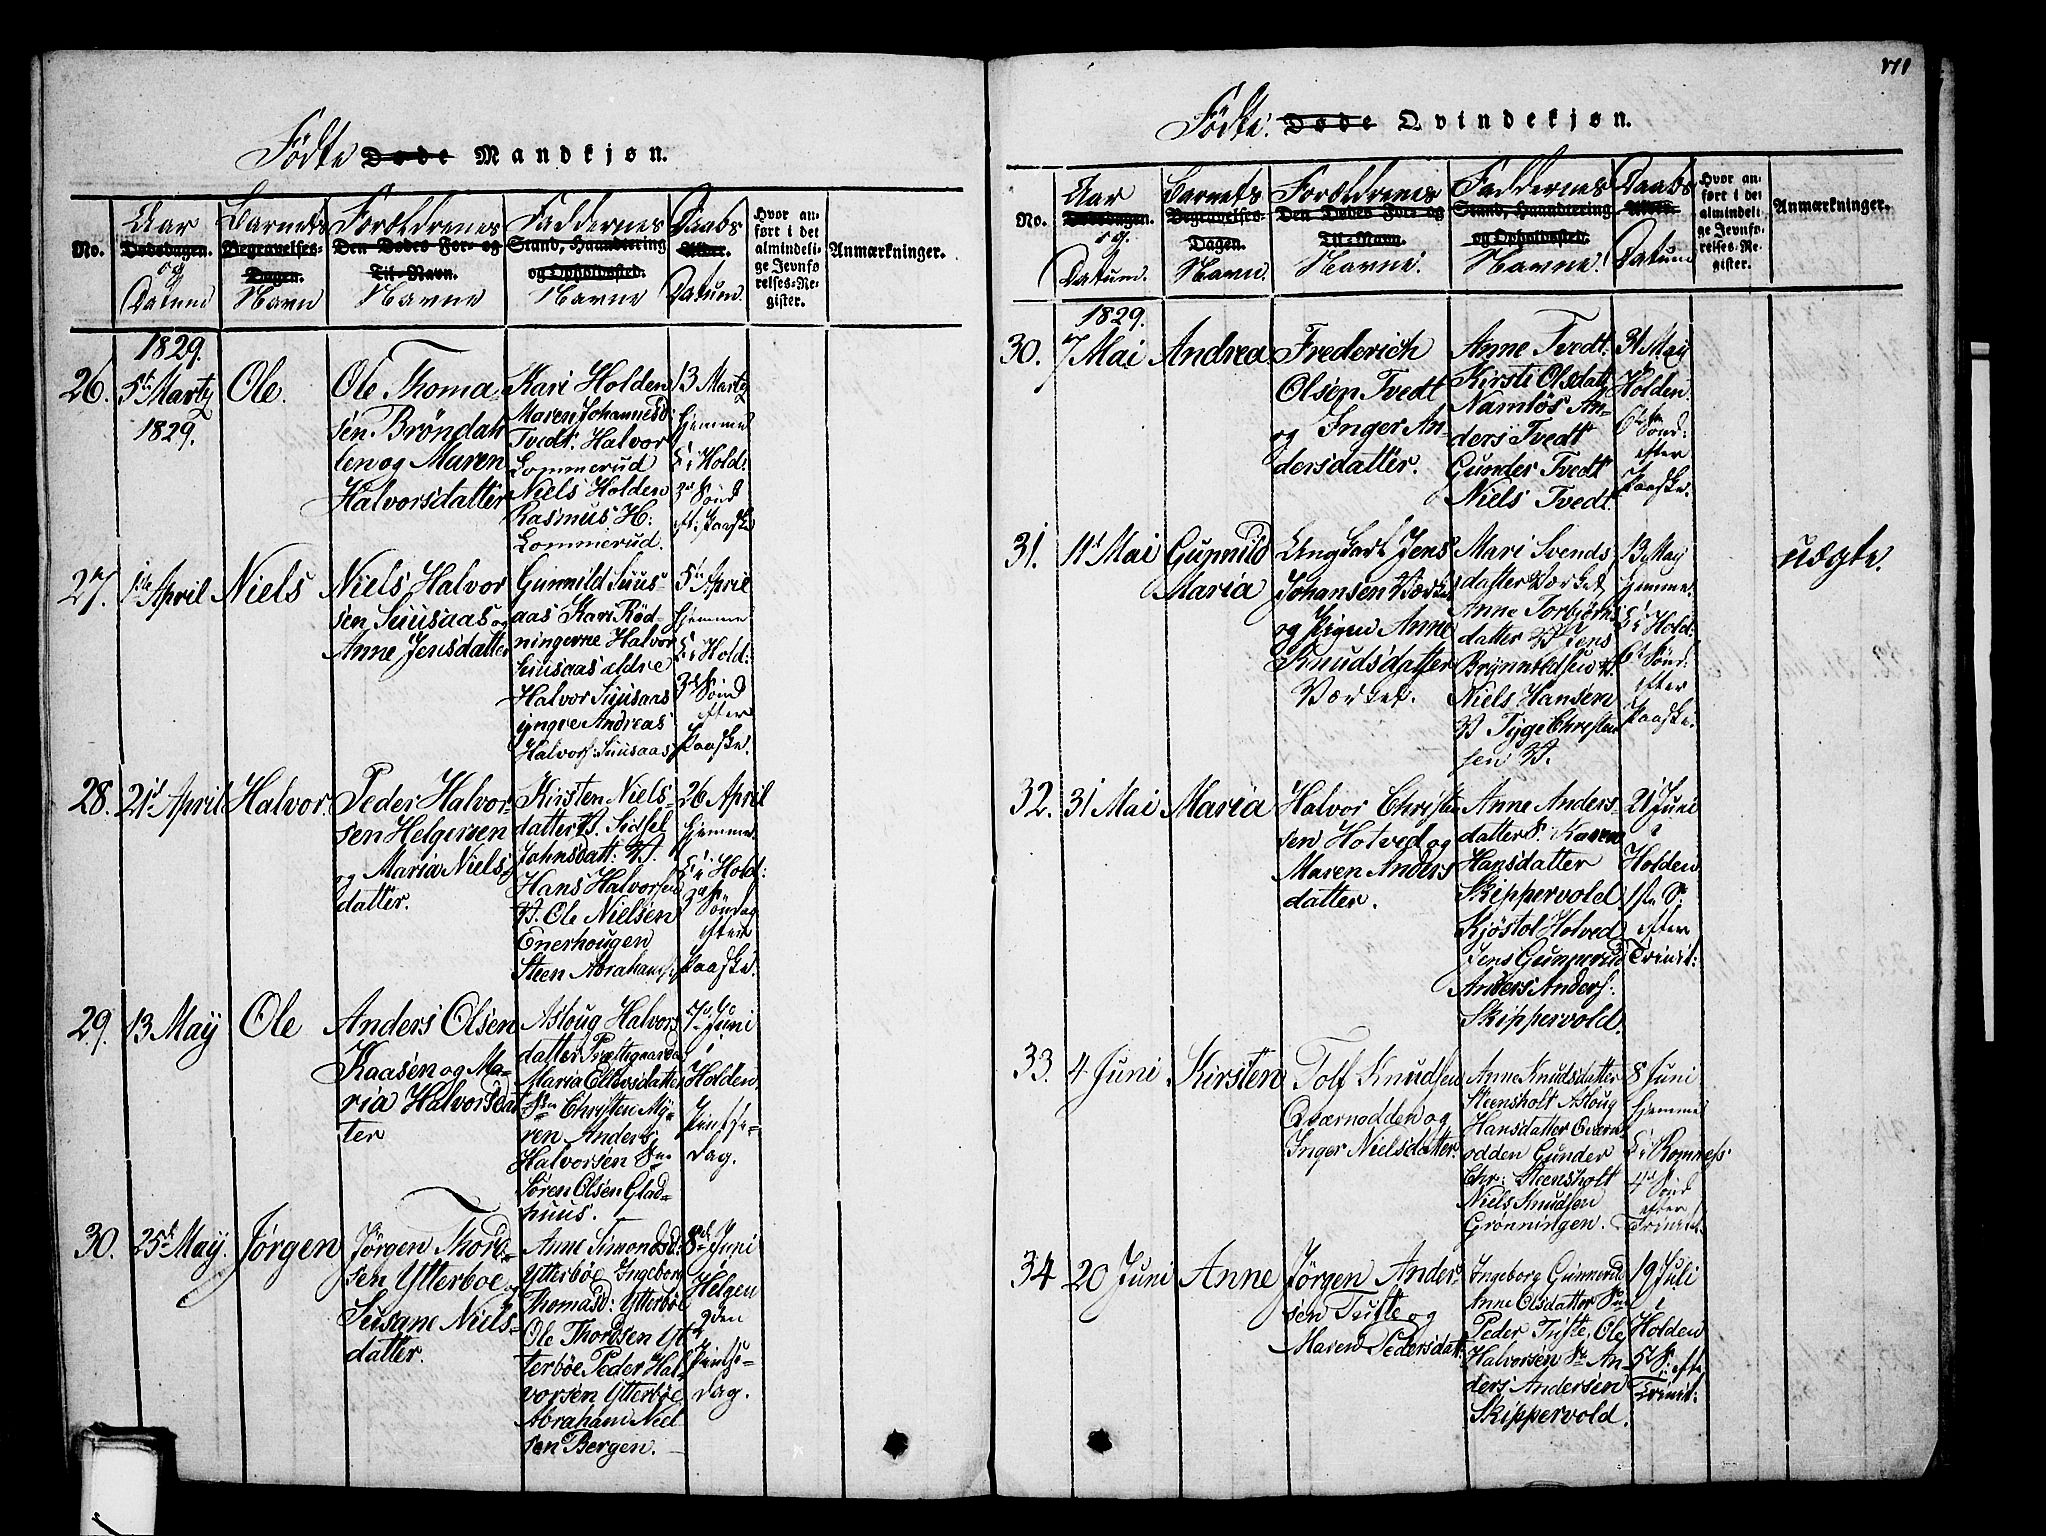 171
Födte Døde Mandkjøn.
No.
Aar
Dødsdagen.
og
Datum
Barnets
Begravelses-
Dagen.
Navn
Forældrenes
Den Dødes For- og
Til-Navn.
Navne
Faddernes
Stand, Haandtering
og Opholdssted.
Navne
Daabs
Alder.
Datum.
Hvor an-
ført i det
almindeli-
ge Jevnfø
relses-Re-
gister.
Anmærkninger.
1829.
26.
5te Marty
1829.
Ole.
Ole Thoma
sen Bröndah
len og Maren
Halvorsdatter
Kari Holden
Maren Johannesd:
Tvedt: Halvor
Lommerud
Niels Holden
Rasmus H:
Lommerud.
13 Marty
hjemme
i Hold:
3d Sönd
eft: Paaske
27.
1ste April
Niels
Niels Halvor
sen Suusaas og
Anne Jensdatter
Gunnild Suus-
aas Kari Röd-
ningerne Halvor
Suusaas ældre
Halvor Suusaas
yngre Andreas
Halvors: Suusaas
5te April
hjemme
i Hold:
3d Sönd
efter
Paaske.
28.
21d April
Halvor.
Peder Halvor-
sen Helgersen
og Maria Niels-
datter.
Kirsten Niels-
datter V. Sidsel
Jahnsdatt: V.
Hans Halvorsen
V. Ole Nielsen
Enerhougen
Steen Abrahams:
26 April
hjemme
i Hold:
3d Söndag
efter
Paaske.
29.
13 May
Ole
Anders Olsen
Kaasen og Ma-
ria Halvorsdat
ter
Asloug Halvors
datter Præstegaarden
Maria Ellevsdatter
Christen My-
ren Anders
Halvorsen
Sören Olsen Glad-
huus.
7de Juni
i
Holden
Pintse-
dag.
30.
25de May.
Jørgen
Jørgen Thord-
sen Ytterboe og
Susane Niels-
datter.
Anne Simonsd:
Ytterböe Ingeborg
Thomasd: Ytterböe
Ole Thordsen Yt
terböe Peder Hal
vorsen Ytterböe
Abraham Niel
sen Bergen.
8de Juni
i
Helgen
2den
Pintse-
dag.
Födte Døde Qvindekjøn.
No.
Aar
Dødsdagen.
og
Datum.
Barnets
Begravelses-
Dagen.
Navn.
Forældrenes
Den Dødes For- og
Til-Navn.
Navne.
Faddernes
Stand, Haandtering
og Opholdssted.
Navne.
Daabs
Alder.
Datum
Hvor an-
ført i det
almindeli-
ge Jevnfø-
relses-Re-
gister.
Anmærkninger.
1829.
30.
7 Mai
Andrea
Frederich
Olsen Tvedt
og Inger An-
dersdatter.
Anne Tvedt:
Kirsti Olsdatt
Namlös An-
ders Tvedt
Gunder Tvedt
Niels Tvedt.
31 May
Holden
6te Sönd:
efter
Paaske.
31.
11d Mai
Gunnild
Maria
Ungkarl Jens
Johansen Værket
og Pigen Anne
Knudsdatter
Værket.
Mari Svends
datter Værket
Anne Torbjörns
datter V Jens
Brynnildsen V.
Niels Hansen
V Tyge Christen
sen V.
13 May
hjemme.
i Hold:
6te Sönd:
efter
Paaske.
uægte.
32.
31 Mai
Maria
Halvor Christen
sen Hotved og
Maren Anders
datter.
Anne Anders
datter S. Karen
Hansdatter
Skippervold
Kjöstol Hotved
Jens Gunnerud
Anders Anders:
Skippervold.
21 Juni
i
Holden
1ste S.
efter
Trinit:
33.
4 Juni
Kirsten
Tolf Knudsen
Qværnodden og
Inger Nielsdatter.
Anne Knudsdatter
Steensholt Asloug
Hansdatter Qværn
odden Gunder
Chr: Steensholt
Niels Knudsen
Grønningen.
8 Juni
hjemme
i Romness
4d Sönd
efter
Trinit.
34
20 Juni
Anne
Jörgen Ander-
sen Tufte og
Maren Pedersdatt.
Ingeborg Gunnerud
Anne Olsdatter
Peder Tufte, Ole
Halvorsen An-
ders Andersen
Skippervold.
19 Juli
i
Holden
5te S: efter
Trinit: